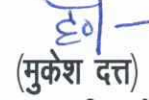 ह०/—
(मुकेश दत्त)